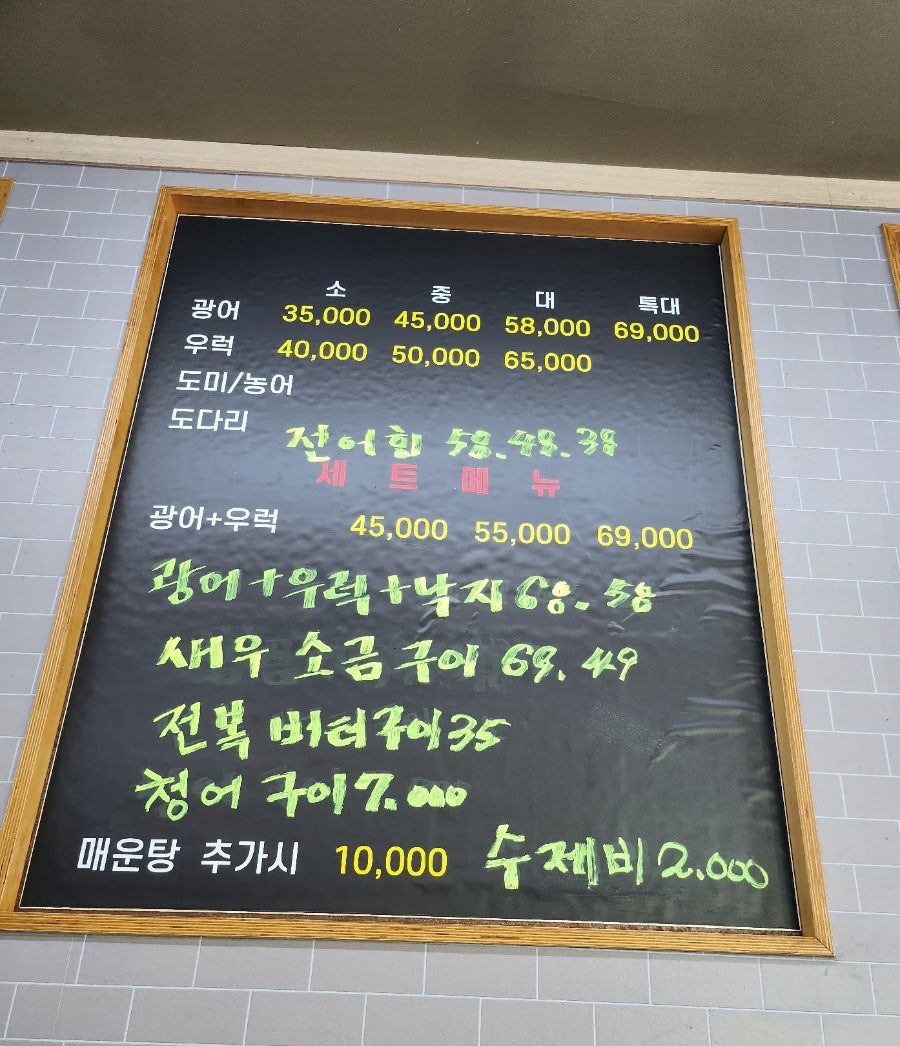 소 중 대 특대
광어 35,000 45,000 58,000 69,000
우럭 40,000 50,000 65,000
도미/농어
도다리
전어회 58.48.38
세트메뉴
광어+우럭 45,000 55,000 69,000
광어+우럭+낙지 68.58
새우 소금구이 69.49
전복 버터구이 35
청어 구이 7.000
매운탕 추가시 10,000 수제비 2.000